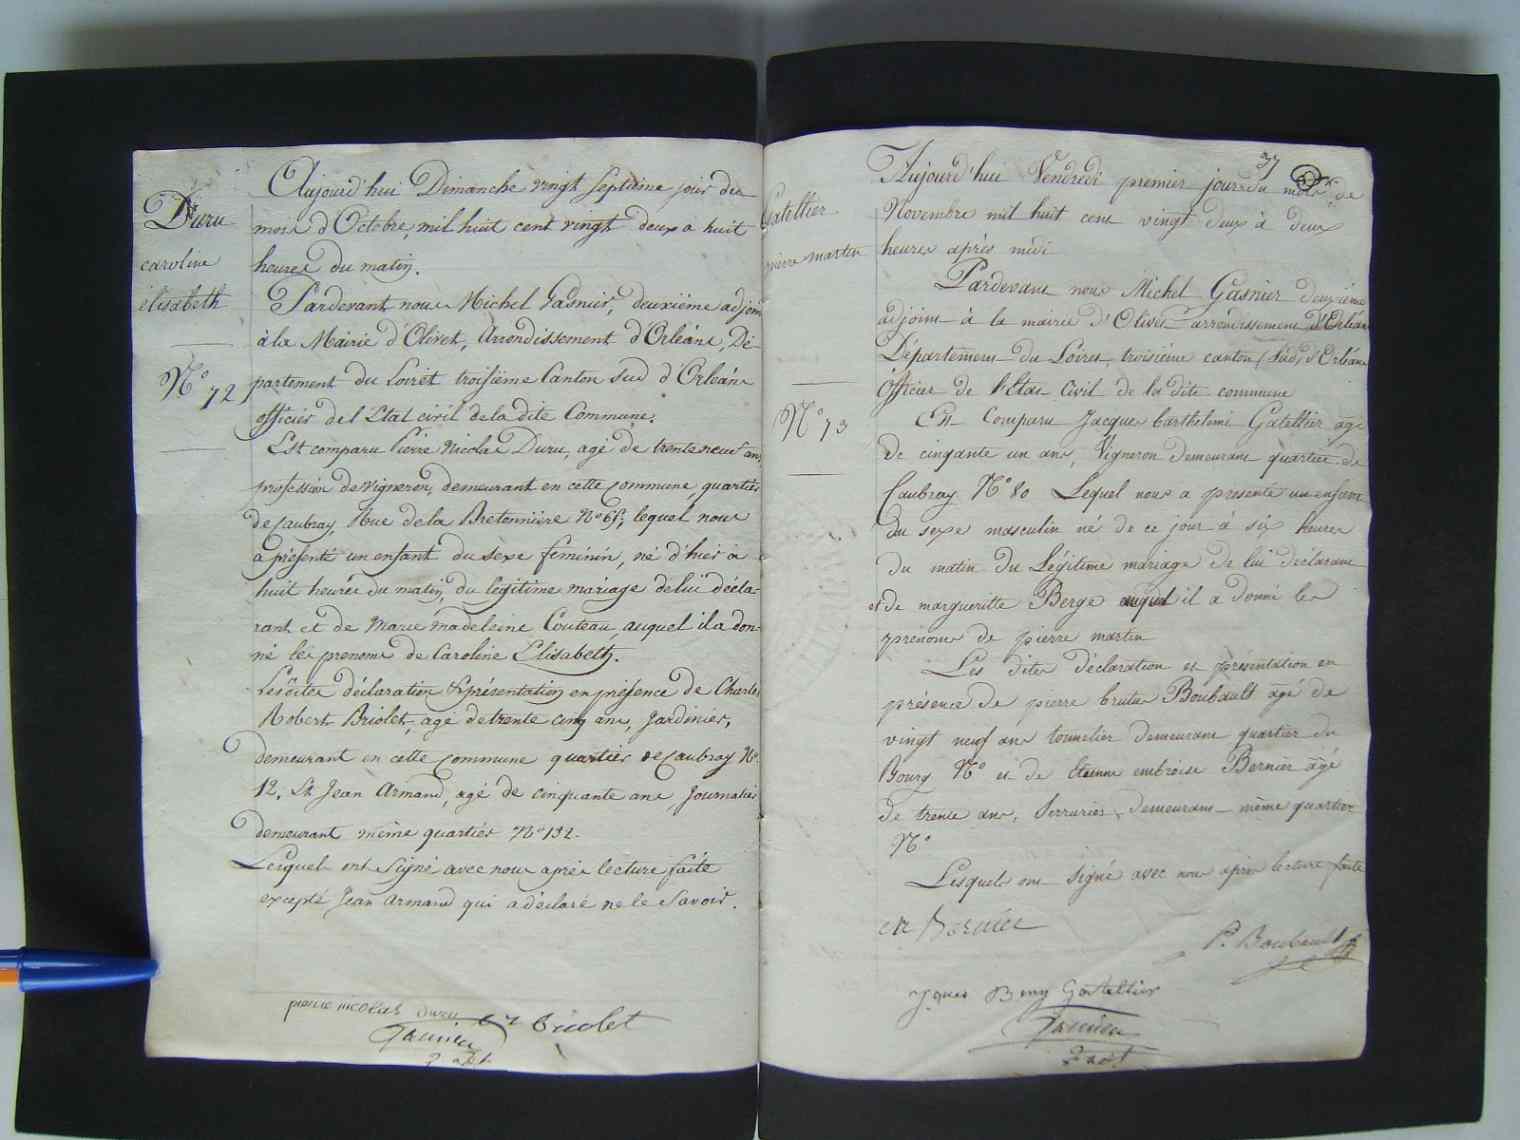 Duru
caroline
élisabeth
N° 72
Aujourd'hui Dimanche vingt septieme jour du
mois d'Octobre, mil huit cent vingt deux a huit
heures du matin.
Pardevant nous Michel Gasnier, deuxième adjoint
à la Mairie d'Olivet, Arrondissement d'Orléans, Dé-
partement du Loiret troisième Canton sud d'Orléans
officier de l'Etat civil de la dite Commune.
Est comparu Pierre Nicolas Duru, agé de trente neuf ans,
profession de vigneron, demeurant en cette commune, quartier
de Caubray, Rue de la Bretonnière N° 65, lequel nous
a présenté un enfant du sexe feminin, né d'hier à
huit heures du matin, du légitime mariage de lui décla-
rant et de Marie madeleine Couteau, auquel il a don-
né les prenoms de Caroline Elisabeth.
Les dites déclaration & présentation en présence de Charles
Robert Briolet, agé de trente cinq ans, Jardinier,
demeurant en cette commune quartier de Caubray N°
12, Et Jean Armand, agé de cinquante ans, Journalier
demeurant même quartier N° 132.
Lesquels ont Signé avec nous après lecture faite
excepté Jean armand qui a déclaré ne le Savoir.
pierre nicolas Duru
Briolet
Gasnier
2 adt
37
Gatellier
pierre martin
N° 73
Aujourd'hui Vendredi premier jour du mois de
Novembre mil huit cent vingt deux à deux
heures après midi
Pardevant nous Michel Gasnier deuxième
adjoint à la mairie d'Olivet arrondissement d'Orléans
Département du Loiret, troisième canton (Sud) d'Orléans
Officier de l'Etat Civil de la dite commune
Est Comparu Jacques barthelimi Gatellier agé
de cinquante un ans, Vigneron demeurant quartier de
Caubray N° 80 Lequel nous a présenté un enfant
du sexe masculin né de ce jour à six heures
du matin du Légitime mariage de lui déclarant
et de margueritte Berge auquel il a donné les
prénoms de pierre martin
Les dites déclaration et présentation en
présence de pierre brutus Boubault âgé de
vingt neuf ans tonnelier demeurant quartier du
Bourg N° et de Etienne embroise Bernier âgé
de trente ans, Serrurier, demeurant même quartier
N°
Lesquels ont signé avec nous après lecture faite
Bernier
P. Boubault
Gatellier
Gasnier
2 adt